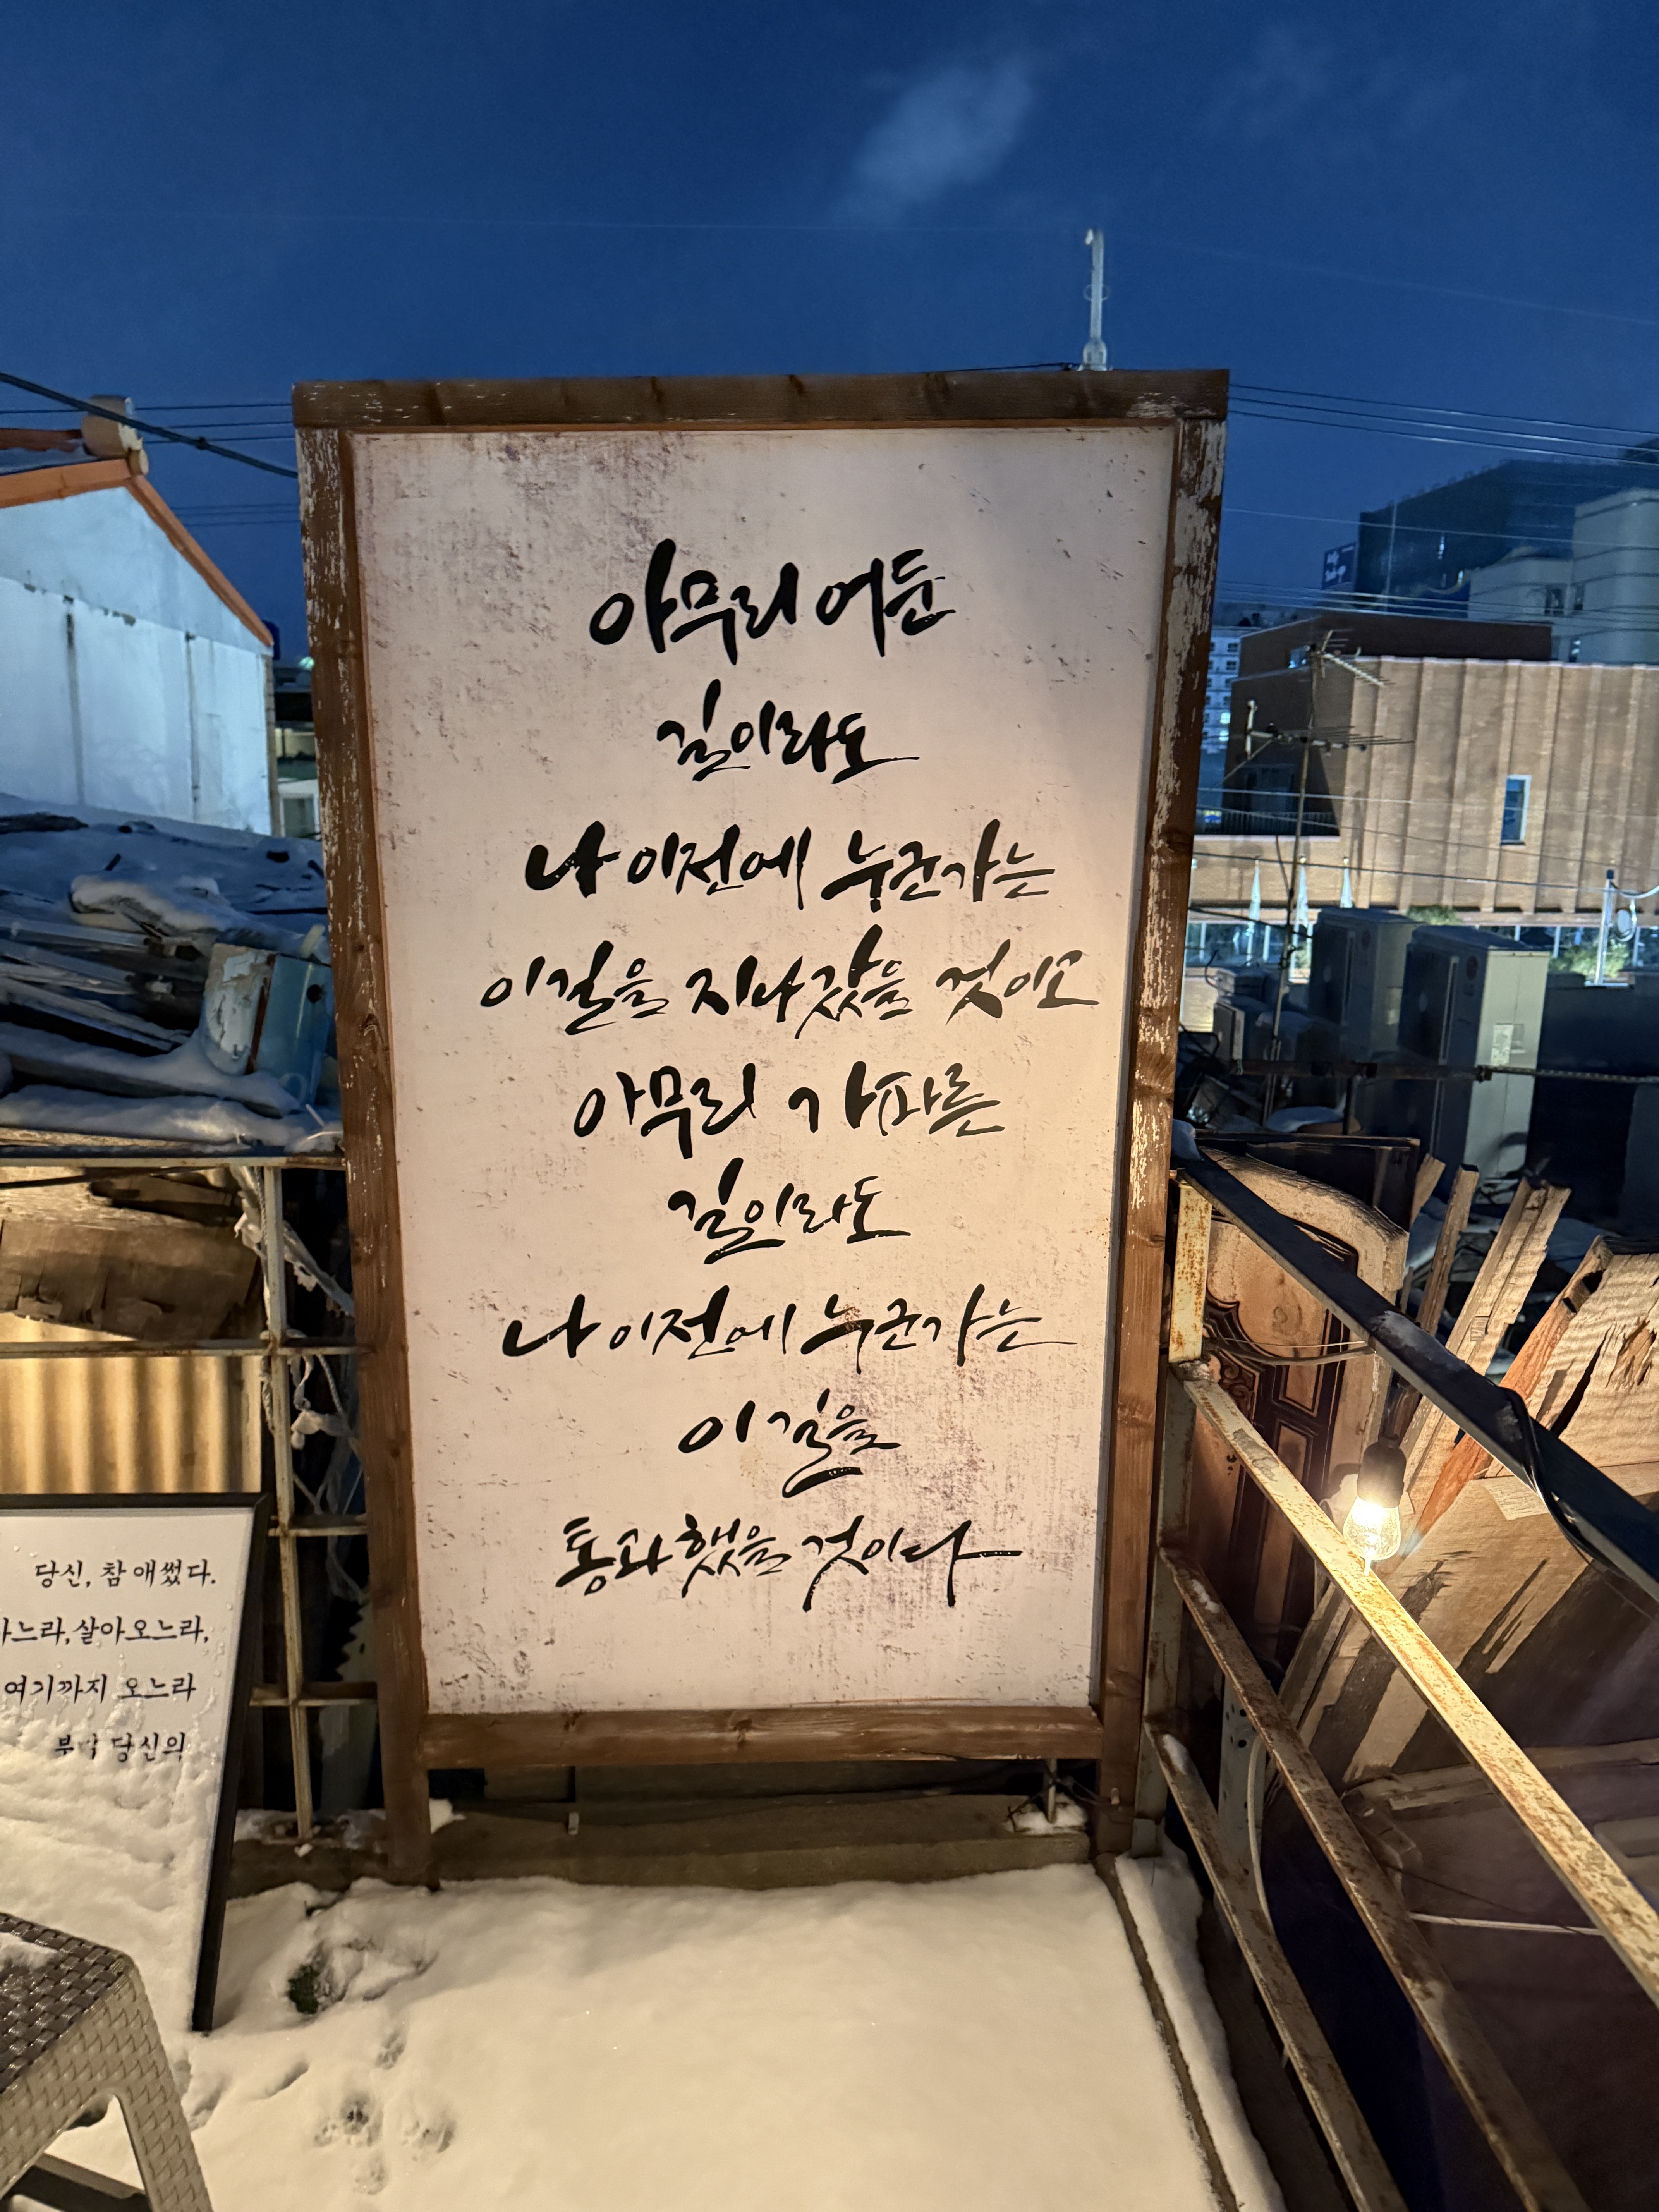 아무리 어둔
길이라도
나 이전에 누군가는
이 길을 지나갔을 것이고
아무리 가파른
길이라도
나 이전에 누군가는
이 길을
통과했을 것이다
당신, 참 애썼다.
느라, 살아오느라,
여기까지 오느라
부디 당신의